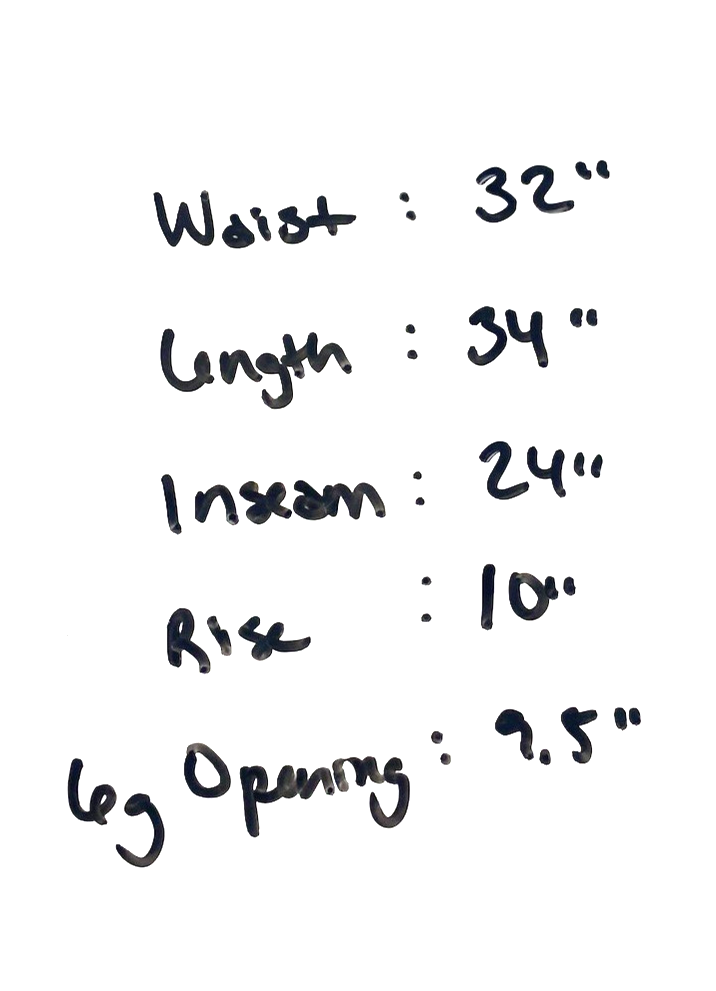 Waist : 32"
Length : 34"
Inseam : 24"
Rise : 10"
Leg Opening : 9.5"